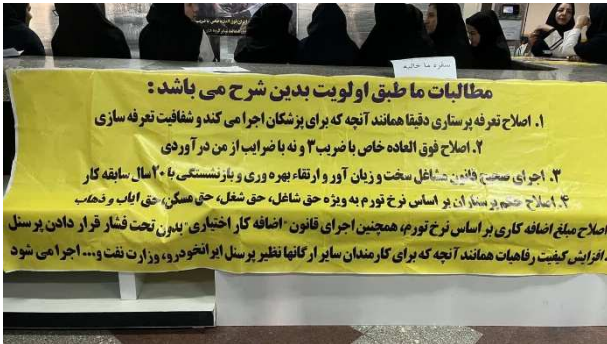 سفره ما خالیه
مطالبات ما طبق اولویت بدین شرح می باشد:
۱. اصلاح تعرفه پرستاری دقیقا همانند آنچه که برای پزشکان اجرا می کند و شفافیت تعرفه سازی
۲. اصلاح فوق العاده خاص با ضریب ۳ و نه با ضرایب از من درآوردی
۳. اجرای صحیح قانون مشاغل سخت و زیان آور و ارتقاء بهره وری و بازنشستگی با ۲۰ سال سابقه کار
۴. اصلاح حکم پرستاران بر اساس نرخ تورم به ویژه حق شاغل، حق شغل، حق مسکن، حق ایاب و ذهاب
اصلاح مبلغ اضافه کاری بر اساس نرخ تورم، همچنین اجرای قانون "اضافه کار اختیاری" بدون تحت فشار قرار دادن پرسنل
.افزایش کیفیت رفاهیات همانند آنچه که برای کارمندان سایر ارگانها نظیر پرسنل ایرانخودرو، وزارت نفت و... اجرا می شود